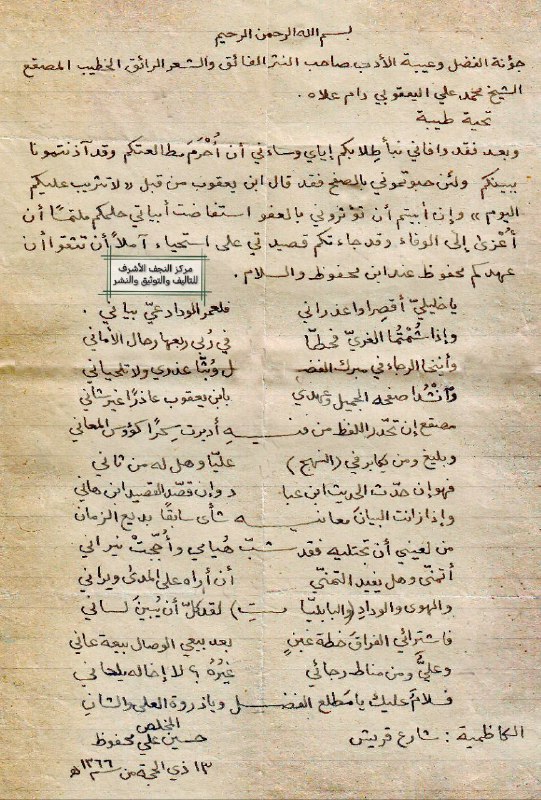 بسم الله الرحمن الرحيم
جؤنة الفضل وعيبة الأدب صاحب النثر الفائق والشعر الرائق الخطيب المصقع
الشيخ محمد علي اليعقوبي دام علاه .
تحية طيبة
وبعد فقد وافاني نبأ طِلابكم إياي وساءني أن أُحْرَمَ مطالعتكم وقد آذنتمونا
ببينكم ولئن حبوتموني بالصفح فقد قال ابن يعقوب من قبل « لا تثريب عليكم
اليوم » وإن أبيتم أن تؤثروني بالعفو استفاضت أبياتي حلمكم ملتمسًا أن
أُعْزىٰ إلى الوفاء وقد جاءتكم قصيدتي على استحياء آملاً أن تثقوا أن
عهدكم محفوظ عند ابن محفوظ والسلام .
مركز النجف الأشرف
للتأليف والتوثيق والنشر
يا خليليّ أقصرا واعذراني فلعمر الوداد عيّ بياني .
وإذا شمتُما الغريّ فحطّا في رُبى ربعها رحال الأماني
وأنيخا الرجاء في مبرك الفضـ ل وبُثّا عذري ولا تلحياني
وٱنْشُدا صفحه الجميل وعهدي بابن يعقوب عاذرًا غير شاني
مصقع إن تحدّر اللفظ من فيـه أديرت سِحرًا كؤوس المعاني
وبليغ ومن يكابر في (النهج) عليّا وهل له من ثاني
فهو إن حدّث الحديث ابن عبا د وإن قصّد القصيد ابن هاني
وإذا زانت البيانَ معانيـه شأى سابقًا بديع الزمان
من لعيني أن تجتليه فقد شبّ هُيامي وأُجّجتْ نيراني
أتمنّى وهل يفيد التمنّي أن أراه على المدىٰ ويراني
والهوى والودادِ (والبابليّا ت) لقد كلّ أن يُبينَ لساني
فاشترائي الفراقَ خطة غبنٍ بعد بيعي الوصال بيعة عاني
وعليٌّ ومن مناط رجائي غيرُهُ ؟ لا إخاله يلحاني
فسلامٌ عليك يا مَطلع الفضـل ويا ذروة العلى والشان
المخلص
الكاظمية : شارع قريش حسين علي محفوظ
١٣ ذي الحجة من سنة ١٣٦٦ هـ